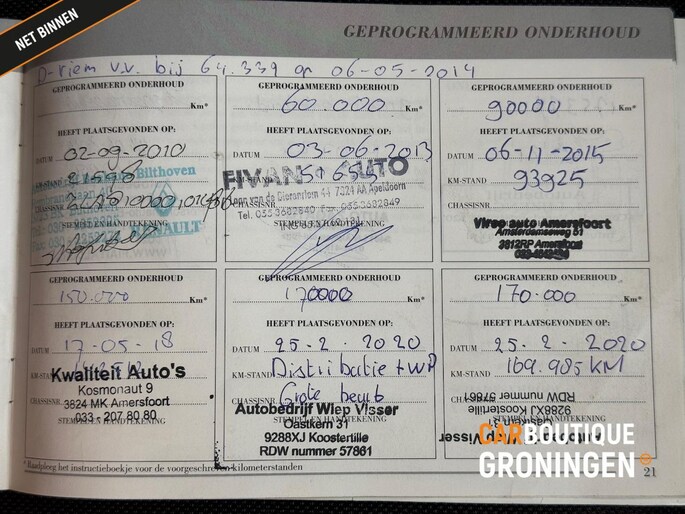 NET BINNEN
GEPROGRAMMEERD ONDERHOUD
D-riem v.v. bij 64.339 op 06-05-2014
GEPROGRAMMEERD ONDERHOUD
Km*
HEEFT PLAATSGEVONDEN OP:
DATUM 02-09-2010
21598
Bilthoven
RENAULT
STEMPEL EN HANDTEKENING
GEPROGRAMMEERD ONDERHOUD
60.000 Km*
HEEFT PLAATSGEVONDEN OP:
DATUM 03-06-2013
KM-STAND 51655
FIVAN AUTO
7324 AA Apeldoorn
Tel. 055 3682840
GEPROGRAMMEERD ONDERHOUD
90000 Km*
HEEFT PLAATSGEVONDEN OP:
DATUM 06-11-2015
KM-STAND 93925
CHASSISNR.
Viroo auto Amersfoort
Amsterdamseweg 51
3812RP Amersfoort
GEPROGRAMMEERD ONDERHOUD
150.000 Km*
HEEFT PLAATSGEVONDEN OP:
DATUM 17-05-18
KM-STAND
Kwaliteit Auto's
Kosmonaut 9
CHASSISNR.
3824 MK Amersfoort
033 - 207 80 80
STEMPEL EN HANDTEKENING
GEPROGRAMMEERD ONDERHOUD
170000 Km*
HEEFT PLAATSGEVONDEN OP:
DATUM 25-2-2020
KM-STAND Distributie + WP
CHASSISNR. Grote beurt
Autobedrijf Wiep Visser
STEMPEL EN HANDTEKENING
Oastkern 31
9288XJ Kootstertille
RDW nummer 57861
GEPROGRAMMEERD ONDERHOUD
170.000 Km*
HEEFT PLAATSGEVONDEN OP:
DATUM 25-2-2020
KM-STAND 169.985 KM
CHASSISNR.
RDW nummer 57861
9288XJ Kootstertille
STEMPEL EN HANDTEKENING
Visser
CARBOUTIQUE
GRONINGEN
* Raadpleeg het instructieboekje voor de voorgeschreven kilometerstanden
21